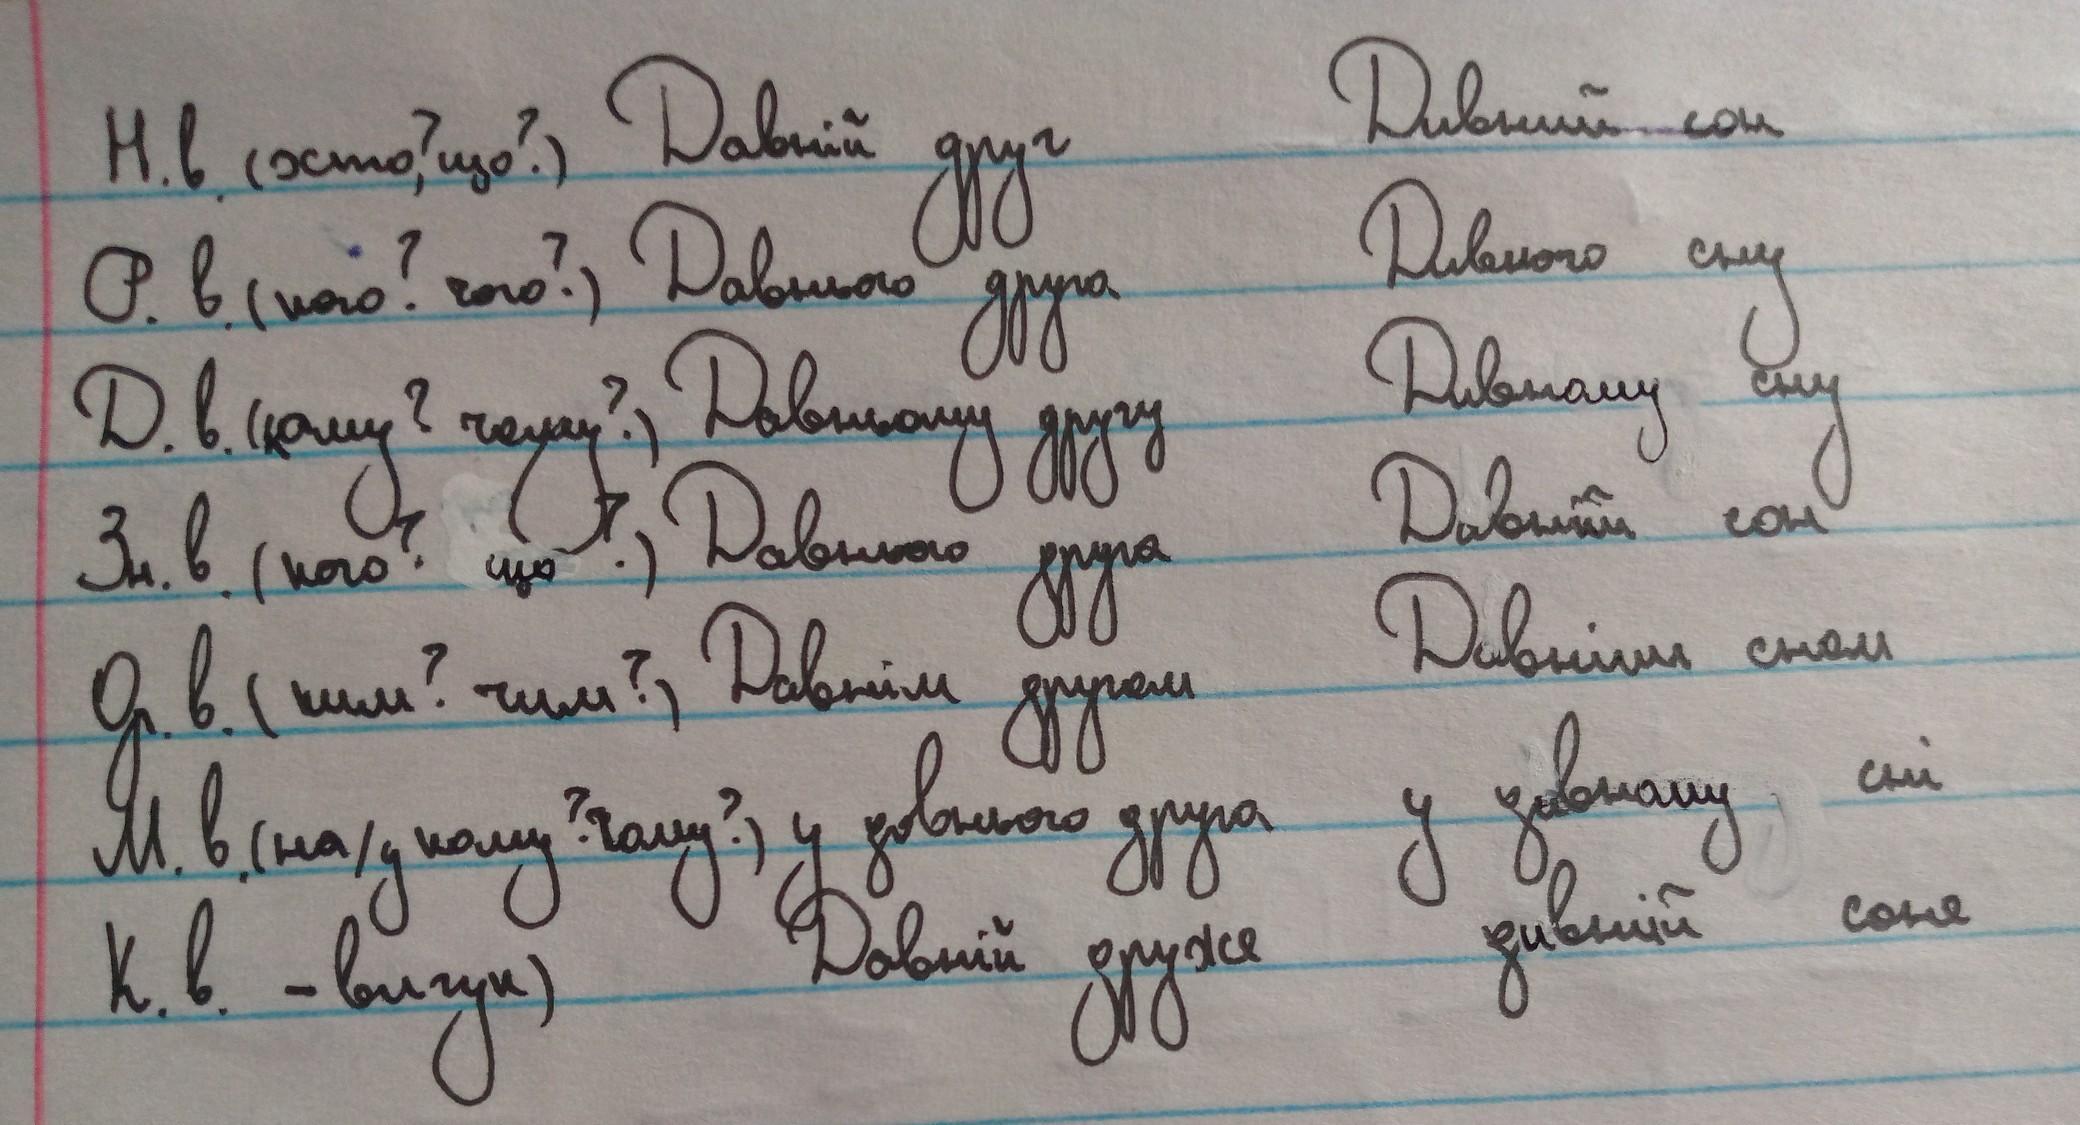 Н.в. (хто?, що?) Давній друг Дивний сон
Р. в. (кого? чого?) Давнього друга Дивного сну
Д. в. (кому? чому?) Давньому другу Дивному сну
Зн. в. (кого? що?) Давнього друга Дивний сон
Ор. в. (ким? чим?) Давнім другом Дивнім сном
М. в. (на/у кому? чому?) у давнього друга у дивному сні
К. в. - вигук) Давній друже дивний соне